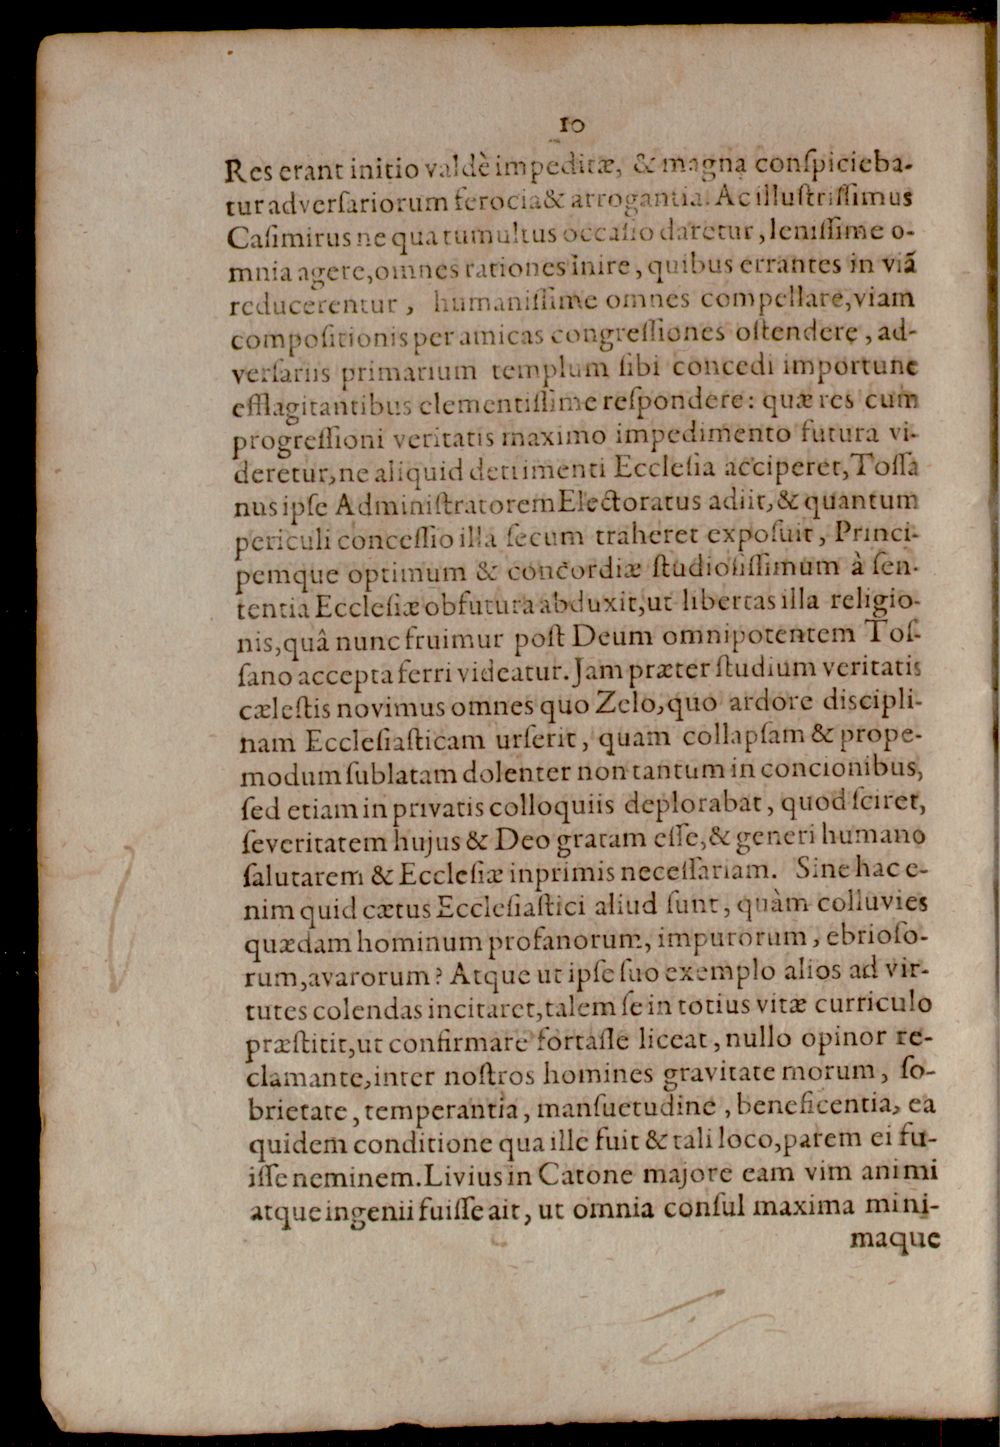 10
Res erant initio valdè impeditæ, & magna conſpicieba-
tur adverſariorum ferocia & arrogantia. Ac illuſtriſſimus
Caſimirus ne qua tumultus occaſio daretur, leniſſime o-
mnia agere, omnes rationes inire, quibus errantes in viã
reducerentur, humaniſſime omnes compellare, viam
compoſitionis per amicas congreſſiones oſtendere, ad-
verſariis primarium templum ſibi concedi importune
efflagitantibus clementiſſime reſpondere: quæ res cum
progreſſioni veritatis maximo impedimento futura vi-
deretur, ne aliquid detrimenti Eccleſia acciperet, Toſſa
nus ipſe Adminiſtratorem Electoratus adiit, & quantum
periculi conceſſio illa ſecum traheret expoſuit, Princi-
pemque optimum & concordiæ ſtudioſiſſimum à ſen-
tentia Eccleſiæ obfutura abduxit, ut libertas illa religio-
nis, quâ nunc fruimur poſt Deum omnipotentem Toſ-
ſano accepta ferri videatur. Jam præter ſtudium veritatis
cæleſtis novimus omnes quo Zelo, quo ardore diſcipli-
nam Eccleſiaſticam urſerit, quam collapſam & prope-
modum ſublatam dolenter non tantum in concionibus,
ſed etiam in privatis colloquiis deplorabat, quod ſciret,
ſeveritatem hujus & Deo gratam eſſe, & generi humano
ſalutarem & Eccleſiæ inprimis neceſſariam. Sine hac e-
nim quid cætus Eccleſiaſtici aliud ſunt, quàm colluvies
quædam hominum profanorum, impurorum, ebrioſo-
rum, avarorum? Atque ut ipſe ſuo exemplo alios ad vir-
tutes colendas incitaret, talem ſe in totius vitæ curriculo
præſtitit, ut confirmare fortaſſe liceat, nullo opinor re-
clamante, inter noſtros homines gravitate morum, ſo-
brietate, temperantia, manſuetudine, beneficentia, ea
quidem conditione qua ille fuit & tali loco, parem ei fu-
iſſe neminem. Livius in Catone majore eam vim animi
atque ingenii fuiſſe ait, ut omnia conſul maxima mini-
maque